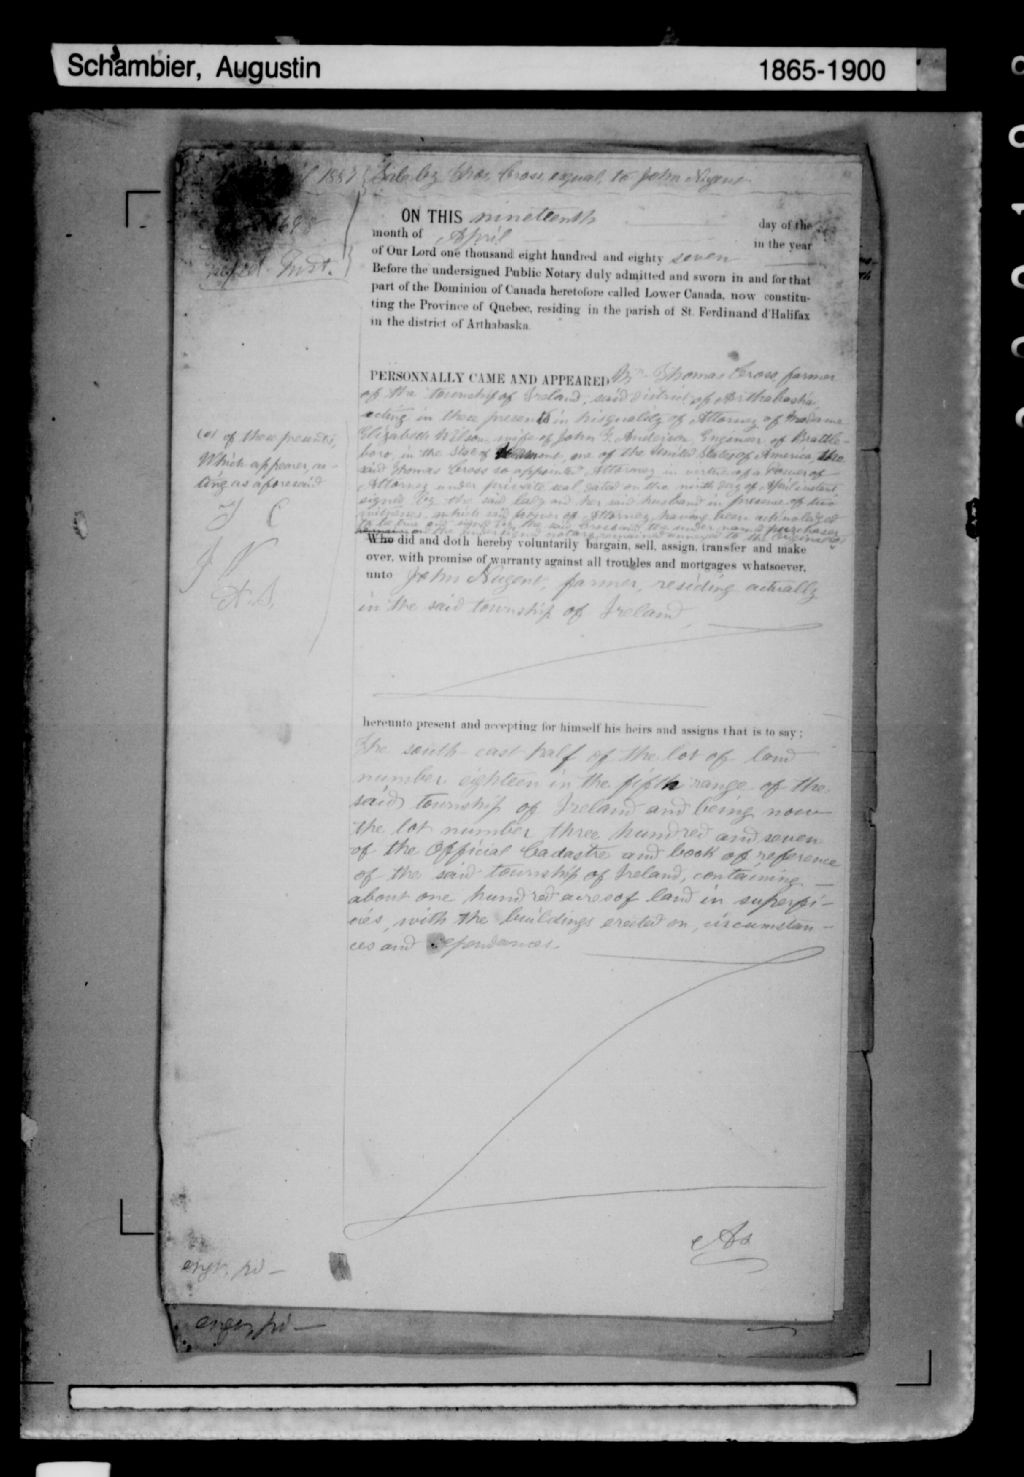 Schambier, Augustin 1865-1900
1887 Sale by Thos Cross, esqual, to John Nugent
ON THIS nineteenth day of the
month of April in the year
of Our Lord one thousand eight hundred and eighty seven
Before the undersigned Public Notary duly admitted and sworn in and for that
part of the Dominion of Canada heretofore called Lower Canada, now constitu-
ting the Province of Quebec, residing in the parish of St. Ferdinand d'Halifax
in the district of Arthabaska.
PERSONNALLY CAME AND APPEARED Mr Thomas Cross, farmer
of the township of Ireland, said district of Arthabaska
acting in these presents in his quality of Attorney of Madame
Elizabeth Wilson, wife of John G. Anderson, Engineer of Brattle-
boro, in the State of Vermont, one of the United States of America, the
said Thomas Cross so appointed Attorney in virtue of a Power of
Attorney under private seal dated on the ninth day of April instant
signed by the said lady and her said husband in presence of two
witnesses, which said power of Attorney having been acknowledged
to be true and signed by the said Cross and the under named purchaser
the undersigned notary remained annexed to the
(a) of these presents,
Which appearer, ac-
ting as aforesaid
T C
J N
A. S.
Who did and doth hereby voluntarily bargain, sell, assign, transfer and make
over, with promise of warranty against all troubles and mortgages whatsoever,
unto John Nugent, farmer, residing actually
in the said township of Ireland
hereunto present and accepting for himself his heirs and assigns that is to say;
The south-east half of the lot of land
number eighteen in the fifth range of the
said township of Ireland and being now
the lot number three hundred and seven
of the Official Cadastre and book of reference
of the said township of Ireland, containing
about one hundred acres of land in superfi-
cies, with the buildings erected on, circumstan-
ces and dependances.
As